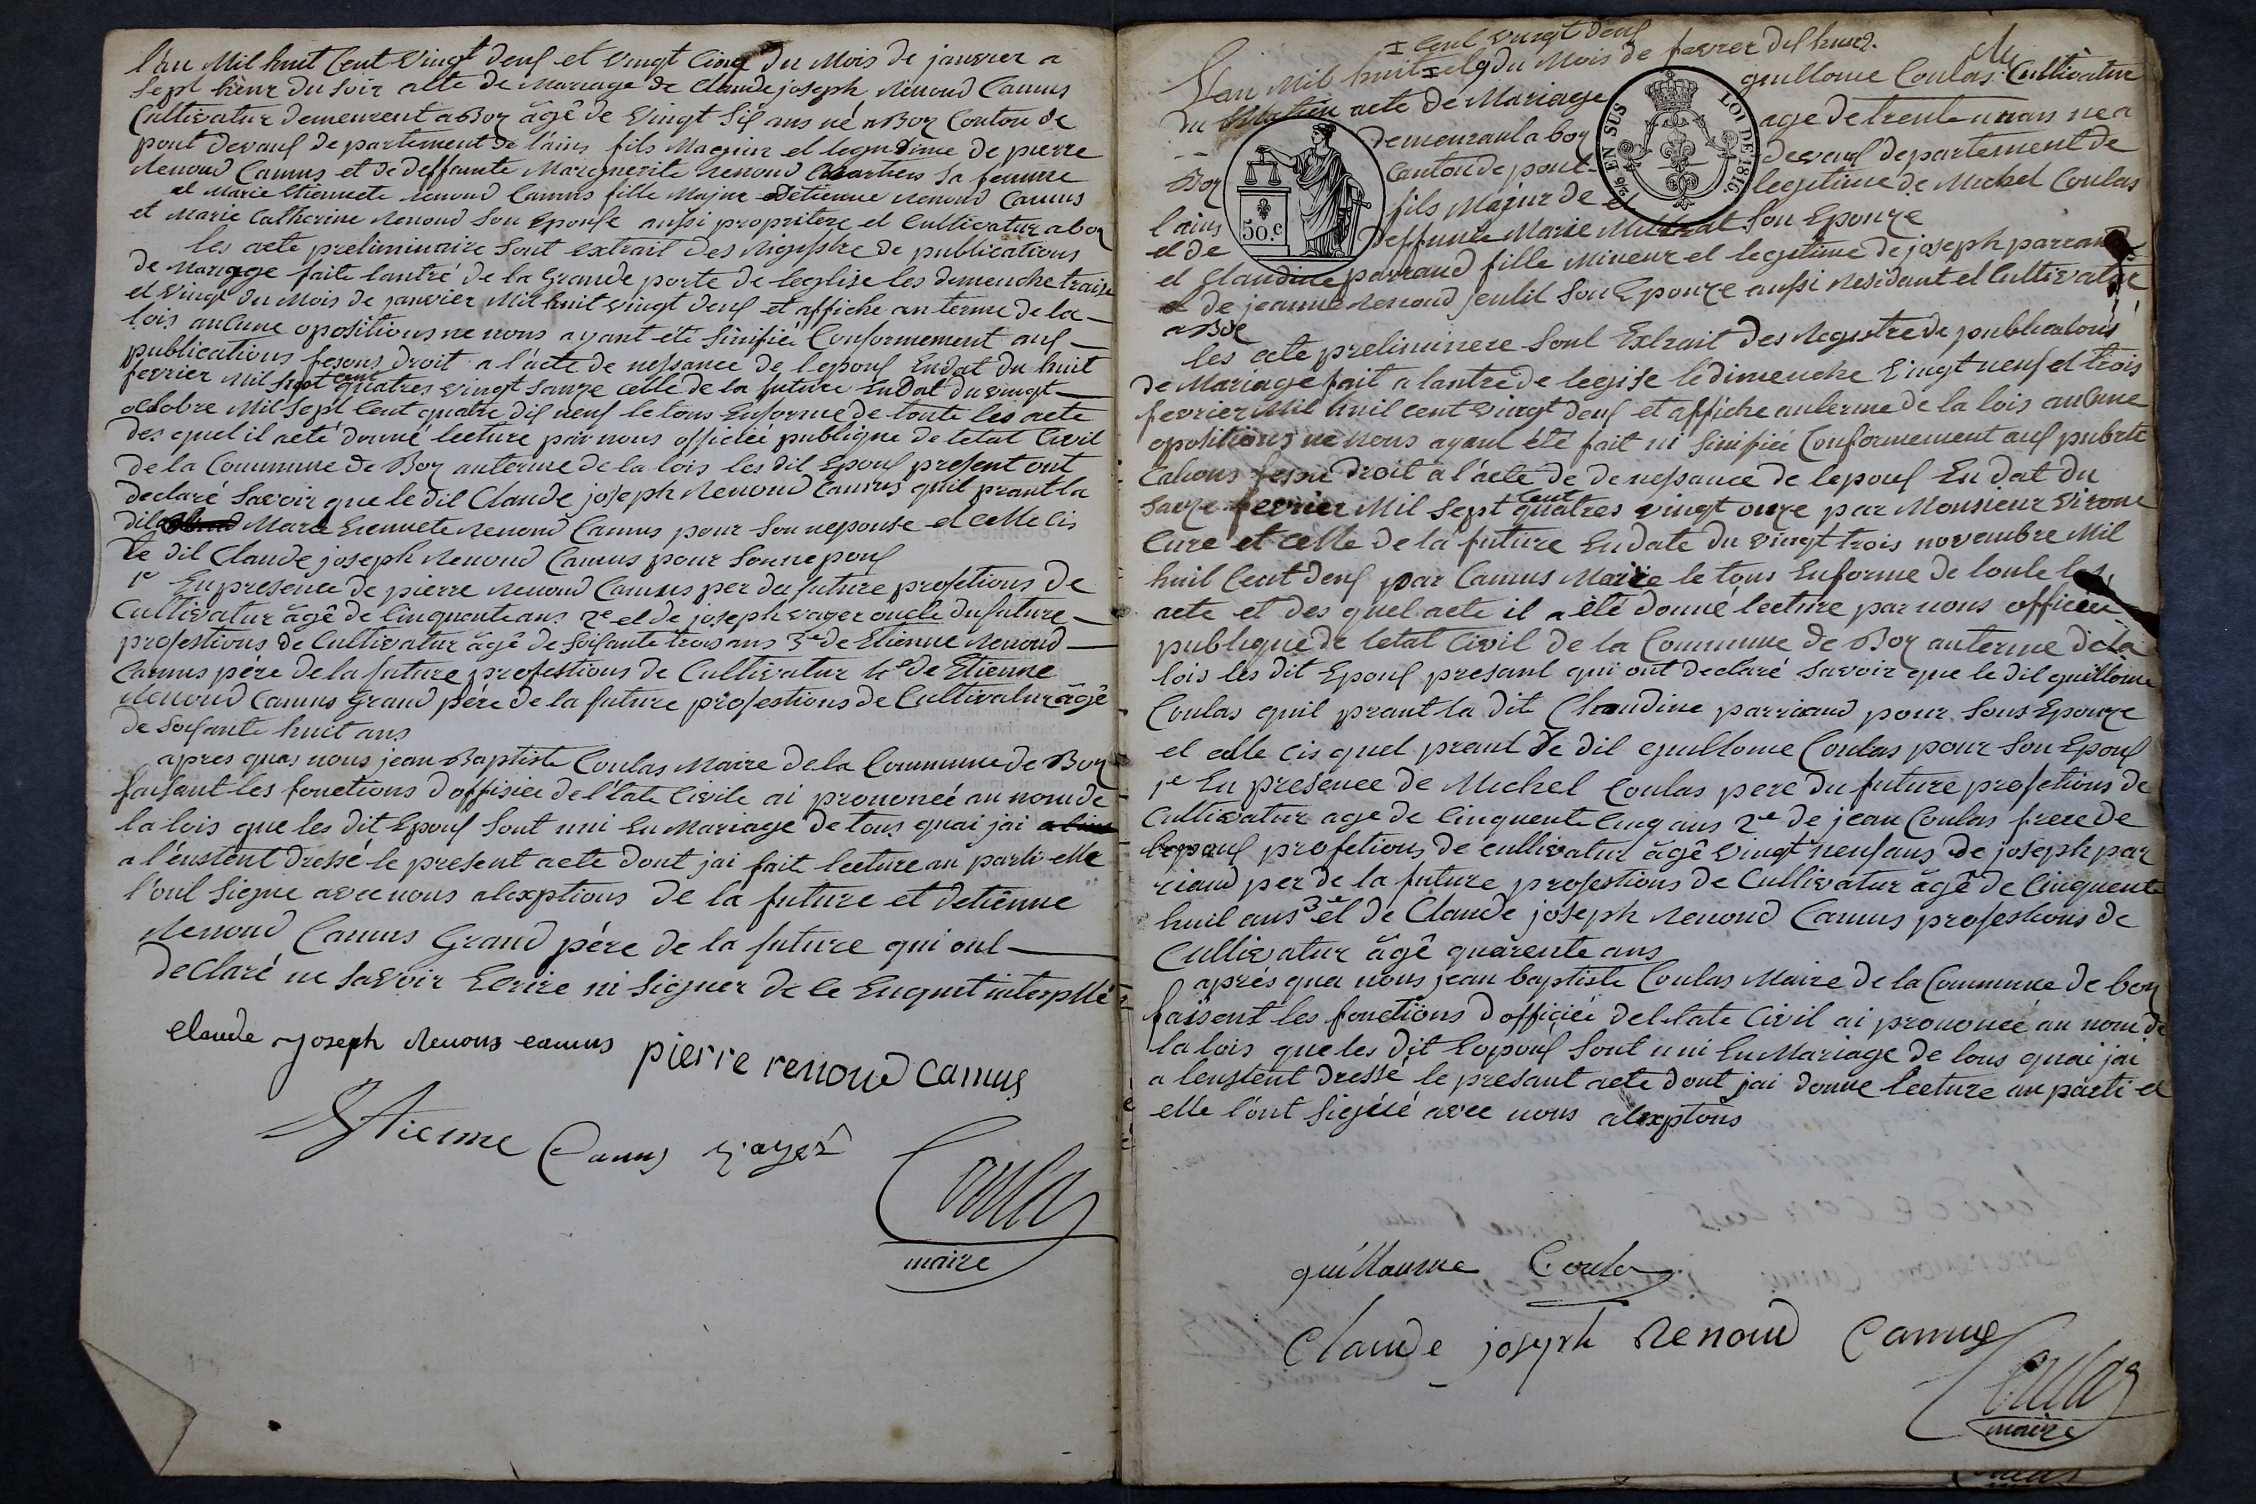 l'an Mil huit Cent Vingt deux et vingt Cinq du Mois de janvier a
Sept heur du Soir acte de Mariage de Claude joseph Renoud Camus
Cultivatur demeurent a Boy âgé de Vingt Six ans né a Boy Conton de
pont devaux de partement de l'ains fils Magur et legitime de pierre
Renoud Camus et de deffunte Marguerite Renoud sa femme
et Marie Etiennete Renoud Camus fille Majur detienne Renoud Camus
et Marie Catherine Renoud Son Epouse aussi propritere et Cultivatur a boy
les acte preliminaire Sont extrait des Registre de publications
de Mariage faite lantré de la Grande porte de leglise les dimenche traise
et Vingt du Mois de janvier Mil huit vingt deux et affiche au terme de la
lois aucune opositions ne nous ayant été Sinifiée Conformement aux
publications fesons droit a l'acte de nessance de lepoux En dat du huit
fevrier Mil Sept cent quatres vingt Sauze celle de la future En Dat du vingt
octobre Mil Sept Cent quatre dix neuf le tous Enforme de toute les acte
des quel il aeté donné lecture par nous officiée publique de letat Civil
de la Commune de Boy auterme de la lois les dit Epoux present ont
declaré Savoir que le dit Claude joseph Renoud Camus quil prant la
dit Marie Etiennete Renoud Camus pour Son nepouse et celle cis
le dit Claude joseph Renoud Camus pour Sonnepoux
1e En presence de pierre Renoud Camus per du future profetions de
Cultivatur âgé de Cinquante ans 2e et de joseph vayer oncle du future
profestions de Cultivatur âgé de Soisante trois ans 3e de Etienne Renoud
Camus père de la future profestions de Cultivatur 4e de Etienne
Renoud Camus Grand père de la future profestions de Cultivatur âgé
de Soisante huit ans
apres quas nous jean Baptiste Coulas Maire de la Commune de Boy
faisant les fonctions d offisiée de l'Etate Civile ai prononcé au nom de
la lois que les dit Epoux Sont uni En Mariage de tous quai jai
a l'énstent dressé le present acte dont jai fait lecture au parti elle
l'ont Signe avec nous alexptions de la future et detienne
Renoud Camus Grand père de la future qui ont
declaré ne Savoir Ecrire ni Signer de ce Enquet
claude joseph Renous camus pierre renoud camus
Etienne Camus vayer
Coulas
maire
I Cent vingt deux
L'an Mil huit I et 9 du Mois de fevrer dix heur
du Matin acte de Mariage de guillome Coulas Cultivatur
demeurant a boy age de trente un ans ne a
Boy Canton de pont devaux departement de
l'ains fils Majur de et legitime de Michel Coulas
et de deffunte Marie Son Epouze
et Claudine parraud fille Mineur et legitime de joseph parraud
et de jeanne Renoud Son Epouze aussi residant et Cultivatur
a Boe
les acte preliminere Sont Extrait des Registre de publications
de Mariage fait a lantré de legise le dimenche Vingt neuf et trois
fevrier Mil huit cent vingt deux et affiche auterme de la lois aucune
opositions ne nous ayant été fait ni Sinifiée Conformement aux publi
Cations droit a l'acte de de nessance de lepoux En dat du
Sauze fevrier Mil Sept Cent quatres vingt onze par Monsieur
Cure et celle de la future En date du vingt trois novembre Mil
huit Cent deux par Camus Maire le tous Enforme de toute les
acte et des quel acte il a été donné lecture par nous officiée
publique de letat Civil de la Commune de Boy auterme de la
lois les dit Epoux presant qui ont declaré Savoir que le dit guillome
Coulas quil prant la dit Claudine parriaud pour Sons Epouze
et celle cis quel prant le dit guillome Coulas pour Son Epoux
1e En presence de Michel Coulas pere du future profetions de
Cultivatur age de Cinquente Cinq ans 2e de jean Coulas frere de
lepoux profetions de cultivatur âgé vingt neuf ans de joseph par
riaud per de la future profestions de Cultivatur âgé de Cinquente
huit ans 3e et de Claude joseph Renoud Camus profestions de
Cultivatur âgé quarente ans
après quoi nous jean baptiste Coulas Maire de la Commune de boy
faisent les fonctions d officiée de letate Civil ai prononcé au nom de
la lois que les dit Eopoux Sont uni En Mariage de tous quai jai
a lenstent dressé le presant acte dont jai donne lecture au parti et
elle l'ont Signé avec nous alexptons
guillaume Coula
Claude joseph Renoud Camus
Coulas
maire
50.c
1/10 EN SUS
LOI DE 1816